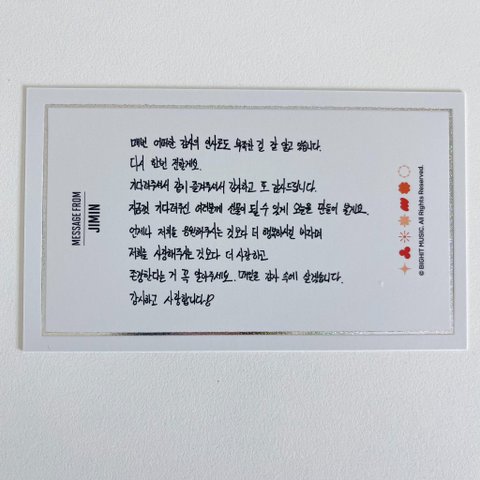 MESSAGE FROM
JIMIN
매번 어떠한 감사의 인사로도 부족한 걸 잘 알고 있습니다.
다시 한번 전할게요.
기다려주셔서 같이 즐겨주셔서 감사하고 또 감사드립니다.
지금껏 기다려주신 여러분께 선물이 될 수 있게 오늘을 만들어 볼게요.
언제나 저희를 응원해주시는 것보다 더 행복하시길 바라며
저희를 사랑해주시는 것보다 더 사랑하고
존경한다는 거 꼭 알아주세요.. 매일을 감사 속에 살겠습니다.
감사하고 사랑합니다
© BIGHIT MUSIC. All Rights Reserved.